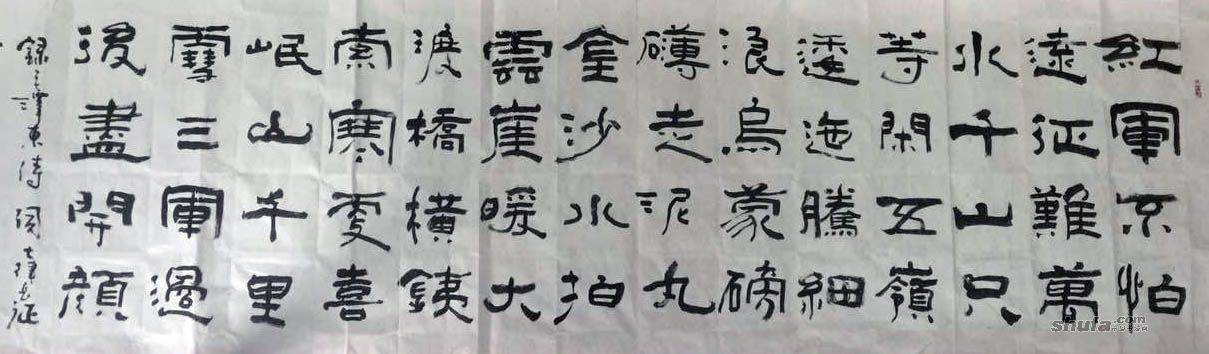 紅軍不怕
遠征難萬
水千山只
等閑五嶺
逶迤騰細
浪烏蒙磅
礴走泥丸
金沙水拍
雲崖暖大
渡橋橫銕
索寒更喜
岷山千里
雪三軍過
後盡開顏
錄毛澤東詩词七律長征
shufa.com